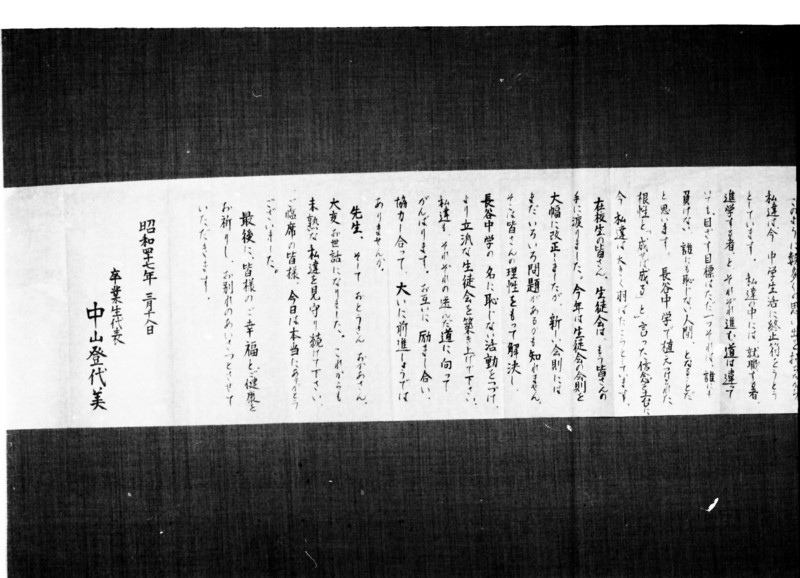 このように数多くの思い出を
私達は今、中学生活に終止符をうとう
としています。私達の中には、就職する者、
進学する者と、それぞれ進む道は違って
いても、目ざす目標はただ一つそれは、誰にも
負けない、誰にも恥じない人間となることだ
と思います。長谷中学で植えつけられた、
根性と「成せば成る」と言った信念を
今、私達は大きく羽ばたこうとしています。
在校生の皆さん、生徒会は、もう皆さんの
手に渡りました。今年は生徒会の会則を
大幅に改正しましたが、新しい会則には
まだいろいろ問題があるかも知れません。
それは皆さんの理性をもって解決し、
長谷中学の名に恥じない活動をつづけ、
より立派な生徒会を築き上げて下さい。
私達も、それぞれの選んだ道に向って
がんばります。お互いに励まし合い、
協力し合って、大いに前進しようでは
ありませんか。
先生、そして、おとうさん、おかあさん、
大変お世話になりました。これからも
未熟な私達を見守り続けて下さい。
ご臨席の皆様、今日は本当にありがとう
ございました。
最後に、皆様のご幸福とご健康を
お祈りし、お別れのあいさつとさせて
いただきます。
昭和四十七年 三月十八日
卒業生代表
中山登代美